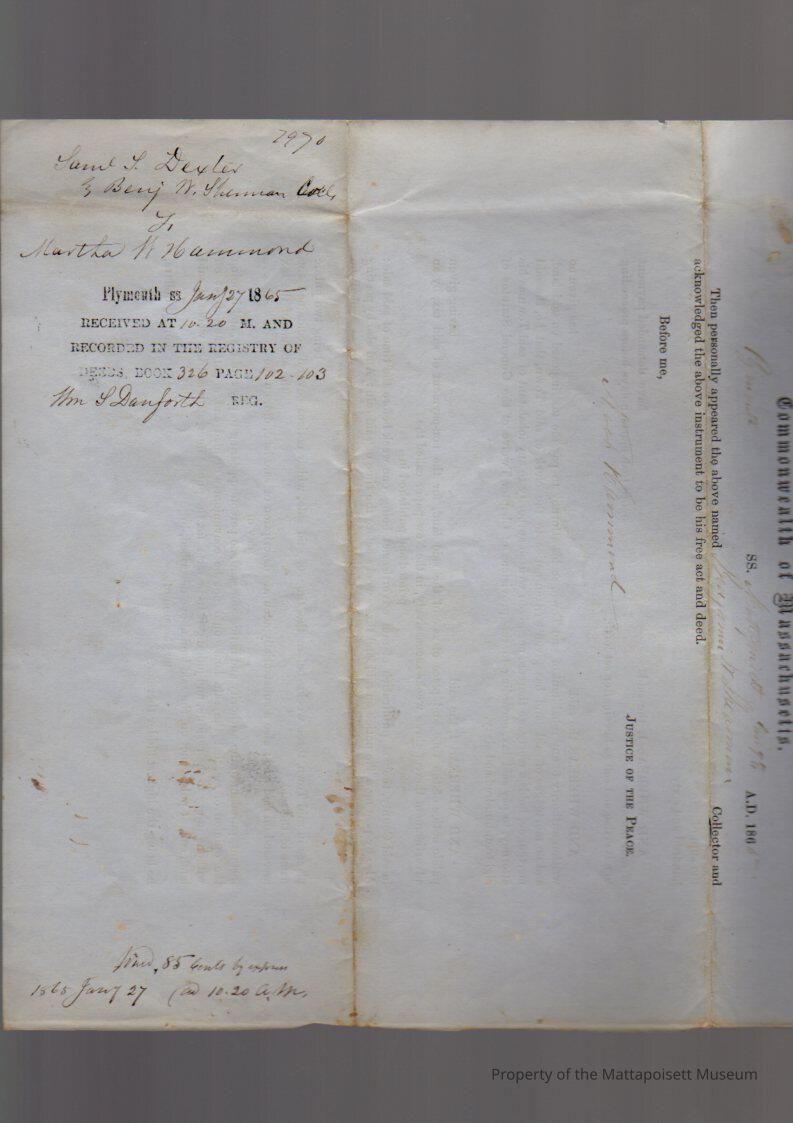 7970
Saml S. Dexter
By Benj W. Sherman Coll,
To
Martha W Hammond
Plymouth ss Jany 27 1865
RECEIVED AT 10.20 M. AND
RECORDED IN THE REGISTRY OF
DEEDS, BOOK 326 PAGE 102-103
Wm S Danforth REG.
85 Cents by express
1865 Jany 27 10.20 A.M.
Commonwealth of Massachusetts.
SS. A.D. 186
Then personally appeared the above named Benjamin W Sherman Collector and
acknowledged the above instrument to be his free act and deed.
Before me,
Hammond
JUSTICE OF THE PEACE.
Property of the Mattapoisett Museum